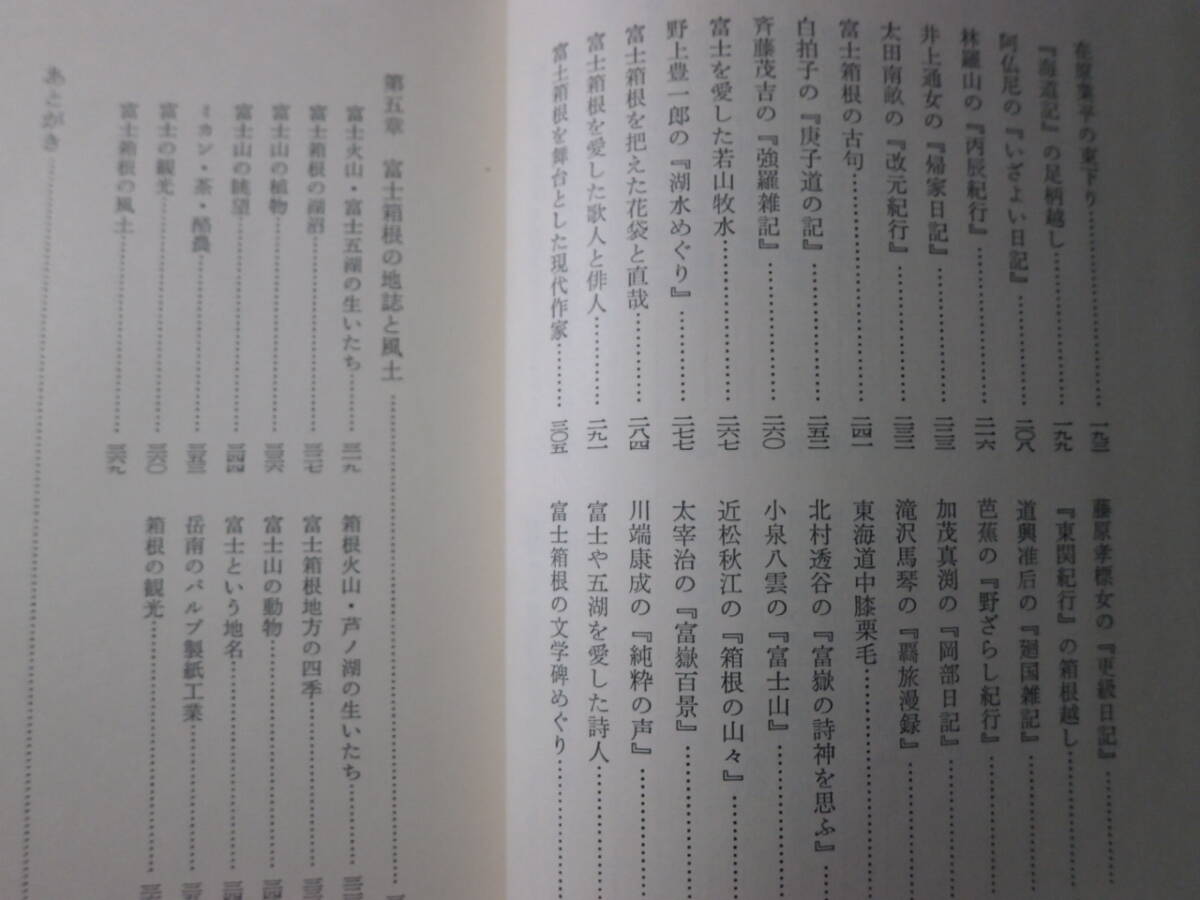 在原業平の東下り…………一九二
藤原孝標女の『更級日記』…………
『海道記』の足柄越し…………一九九
『東関紀行』の箱根越し…………
阿仏尼の『いざよい日記』…………二〇八
道興准后の『廻国雑記』…………
林羅山の『丙辰紀行』…………二一六
芭蕉の『野ざらし紀行』…………
井上通女の『帰家日記』…………二二三
加茂真渕の『岡部日記』…………
太田南畝の『改元紀行』…………二三二
滝沢馬琴の『羇旅漫録』…………
富士箱根の古句…………二四一
東海道中膝栗毛…………
白拍子の『庚子道の記』…………二五二
北村透谷の『富嶽の詩神を思ふ』…………
斉藤茂吉の『強羅雑記』…………二六〇
小泉八雲の『富士山』…………
富士を愛した若山牧水…………二六七
近松秋江の『箱根の山々』…………
野上豊一郎の『湖水めぐり』…………二七七
太宰治の『富嶽百景』…………
富士箱根を把えた花袋と直哉…………二八四
川端康成の『純粋の声』…………
富士箱根を愛した歌人と俳人…………二九一
富士や五湖を愛した詩人…………
富士箱根を舞台とした現代作家…………三〇五
富士箱根の文学碑めぐり…………
第五章　富士箱根の地誌と風土…………
富士火山・富士五湖の生いたち…………三一九
箱根火山・芦ノ湖の生いたち…………
富士箱根の湖沼…………三二七
富士箱根地方の四季…………
富士山の植物…………三三六
富士山の動物…………
富士山の眺望…………三四四
富士という地名…………
ミカン・茶・酪農…………三五三
岳南のパルプ製紙工業…………
富士の観光…………三六〇
箱根の観光…………
富士箱根の風土…………三六九
あとがき…………